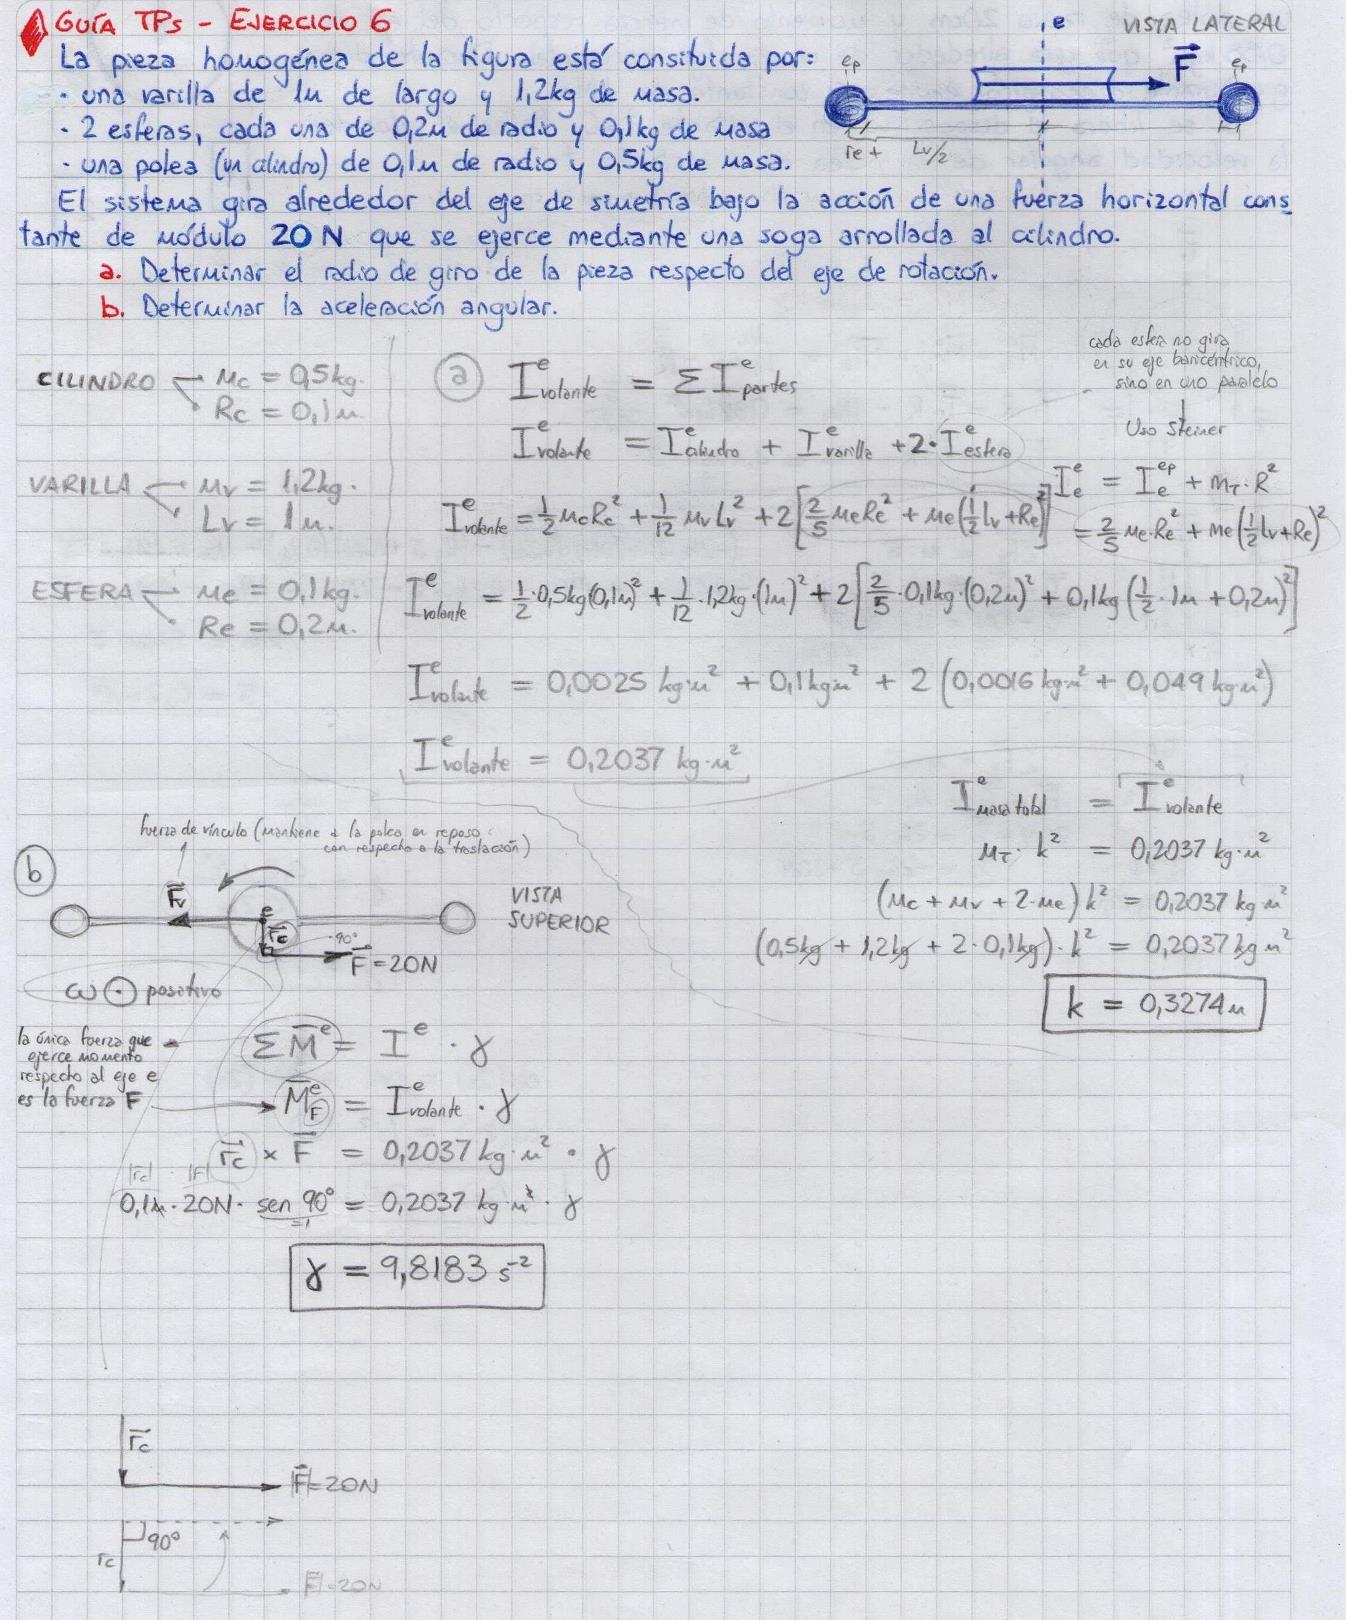 GUÍA TPs - EJERCICIO 6
La pieza homogénea de la figura está consituida por:
· una varilla de 1m de largo y 1,2kg de masa.
· 2 esferas, cada una de 0,2m de radio y 0,1kg de masa
· una polea (un cilindro) de 0,1m de radio y 0,5kg de masa.
El sistema gira alrededor del eje de simetría bajo la acción de una fuerza horizontal cons
tante de módulo 20 N que se ejerce mediante una soga arrollada al cilindro.
a. Determinar el radio de giro de la pieza respecto del eje de rotación.
b. Determinar la aceleración angular.
e VISTA LATERAL
ep F ep
re + Lv/2
CILINDRO mc = 0,5kg.
Rc = 0,1m.
VARILLA mv = 1,2kg.
Lv = 1m.
ESFERA me = 0,1kg.
Re = 0,2m.
a I^e volante = Σ I^e partes
I^e volante = I^e cilindro + I^e varilla + 2·I^e esfera
cada esfera no gira
en su eje baricéntrico,
sino en uno paralelo
Uso Steiner
I^e e = I^ep e + mT·R²
= 2/5 me·Re² + me(1/2 Lv+Re)²
I^e volante = 1/2 mcRc² + 1/12 mvLv² + 2[2/5 meRe² + me(1/2 Lv+Re)²]
I^e volante = 1/2·0,5kg(0,1m)² + 1/12·1,2kg·(1m)² + 2[2/5·0,1kg·(0,2m)² + 0,1kg(1/2·1m+0,2m)²]
I^e volante = 0,0025 kg·m² + 0,1kg·m² + 2(0,0016 kg·m² + 0,049 kg·m²)
I^e volante = 0,2037 kg·m²
I^e masa total = I^e volante
mT·k² = 0,2037 kg·m²
(mc + mv + 2·me)k² = 0,2037 kg·m²
(0,5kg + 1,2kg + 2·0,1kg)·k² = 0,2037 kg m²
k = 0,3274m
b
fuerza de vínculo (mantiene a la polea en reposo
con respecto a la traslación)
Fv e rc 90° F = 20N
VISTA
SUPERIOR
ω ⊙ positivo
la única fuerza que
ejerce momento
respecto al eje e
es la fuerza F
Σ M^e = I^e · γ
M^e F = I^e volante · γ
rc × F = 0,2037 kg·m² · γ
|rc| |F|
0,1m·20N·sen 90° = 0,2037 kg·m² · γ
=1
γ = 9,8183 s⁻²
rc
|F|=20N
90°
rc
|F|=20N